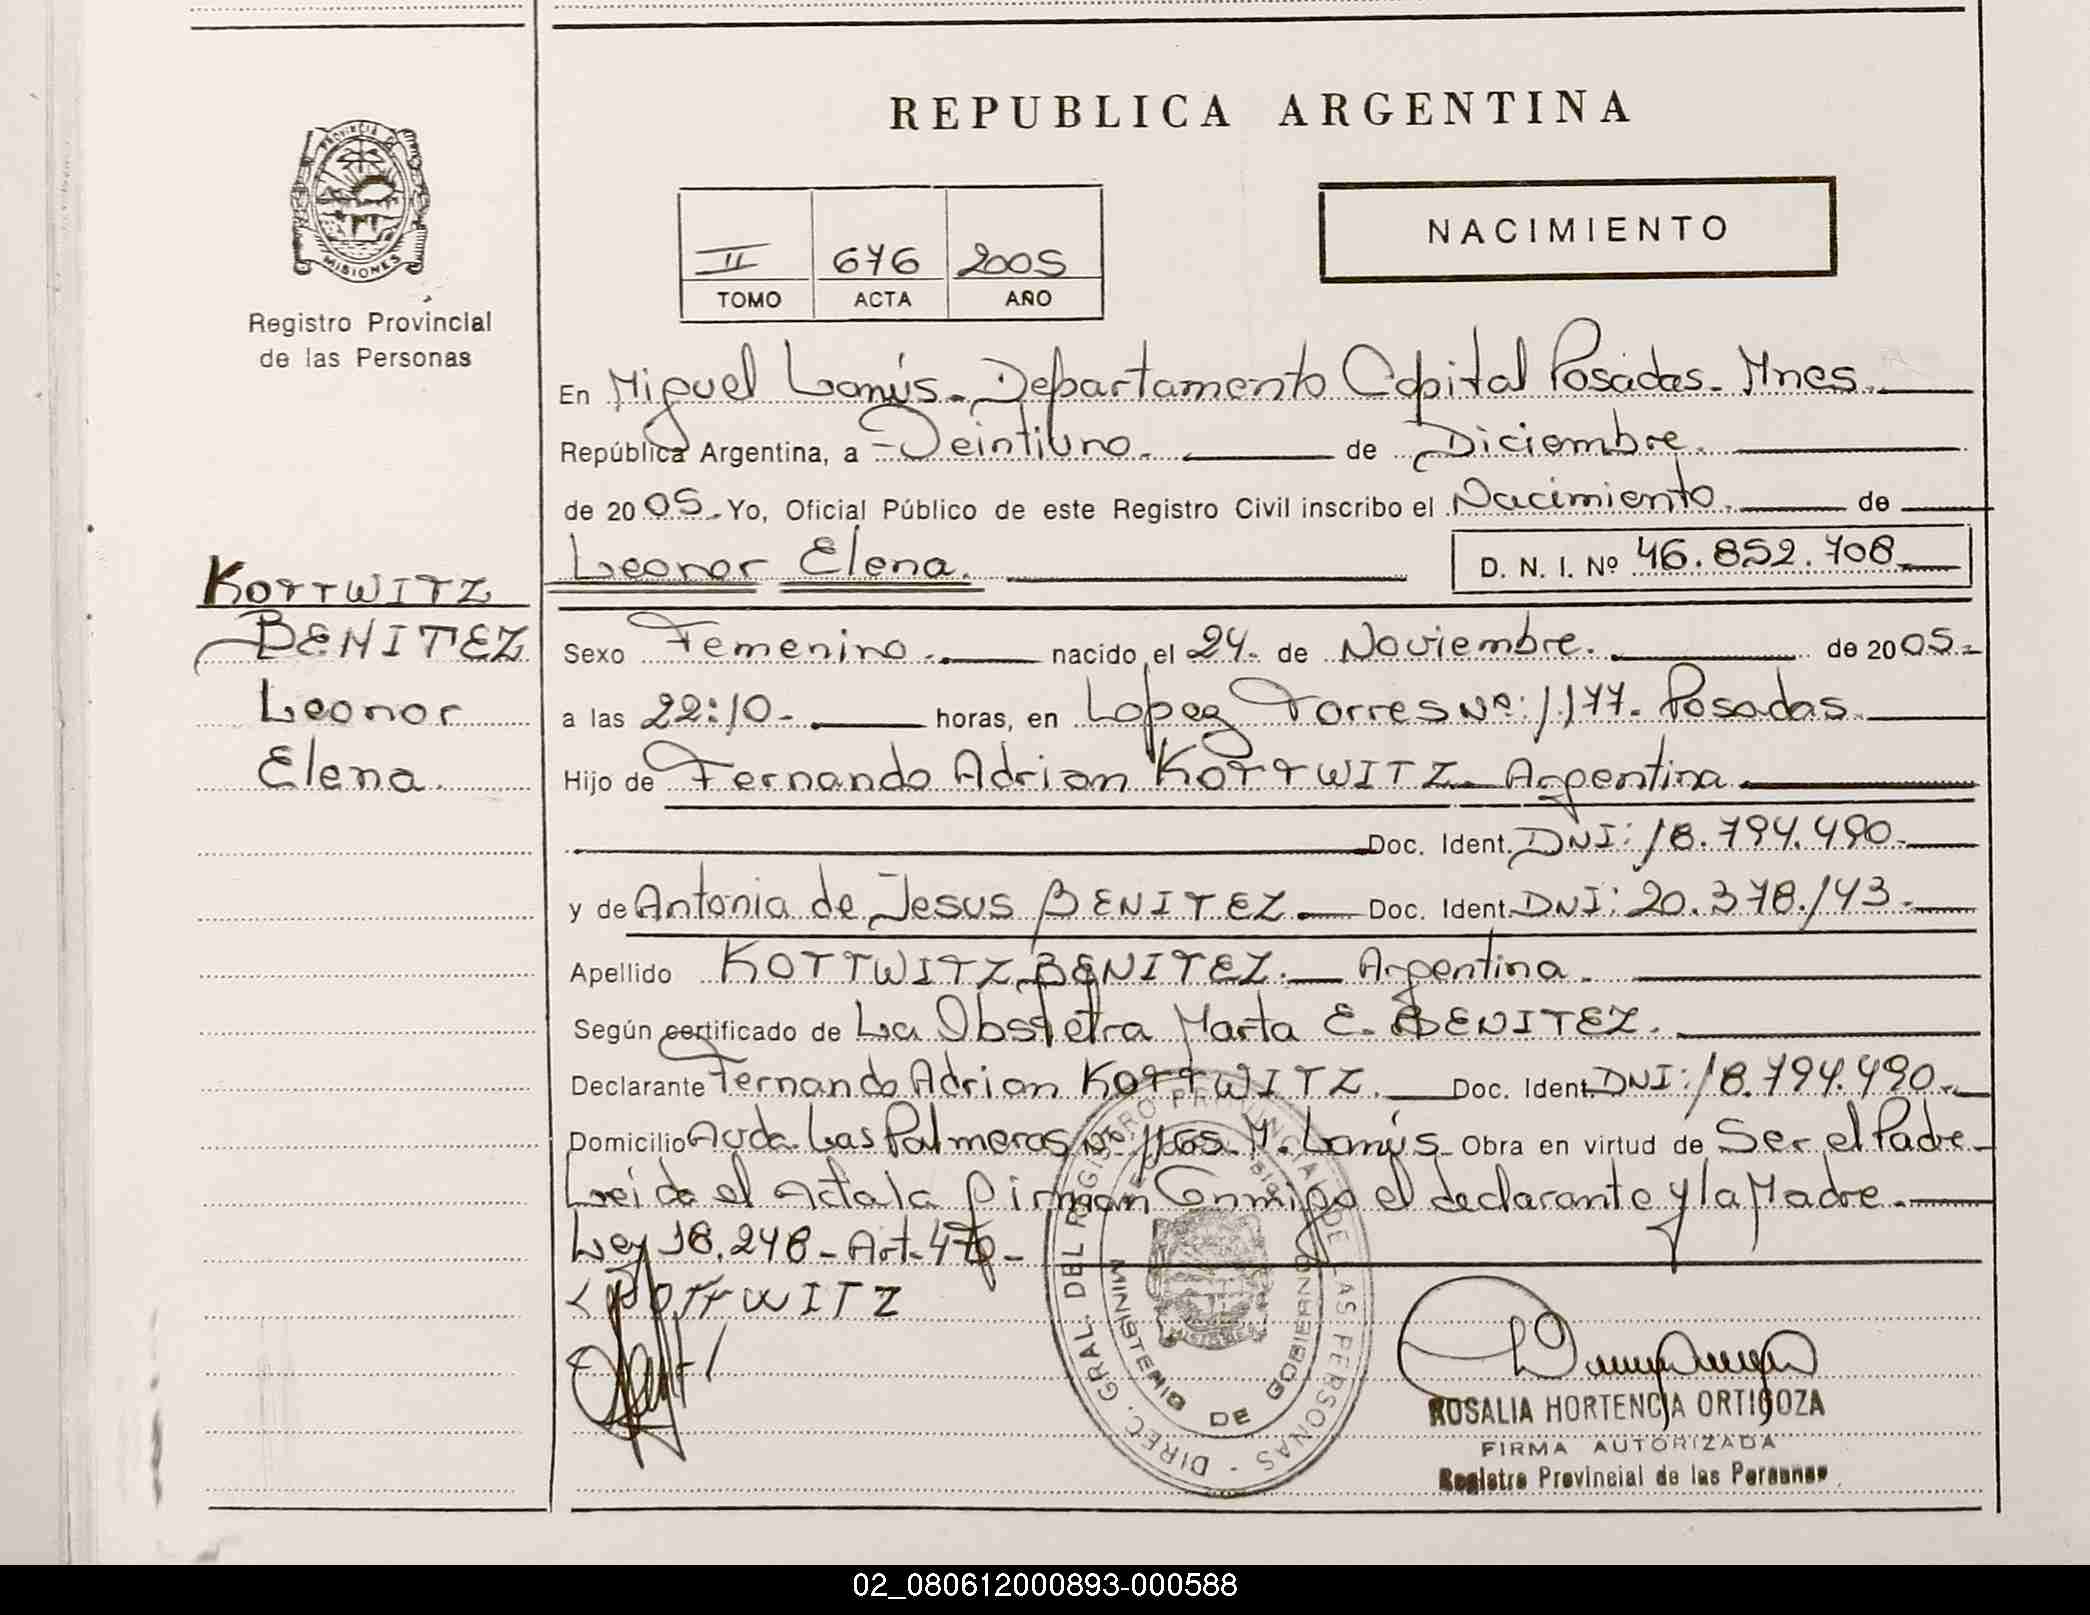 REPUBLICA ARGENTINA
PROVINCIA DE
MISIONES
Registro Provincial
de las Personas
II 676 2005
TOMO ACTA AÑO
NACIMIENTO
En Miguel Lanús - Departamento Capital Posadas - Mnes.
República Argentina, a Veintiuno. de Diciembre.
de 2005. Yo, Oficial Público de este Registro Civil inscribo el Nacimiento. de
Leonor Elena. D. N. I. Nº 46.852.708
KOTTWITZ
BENITEZ
Leonor
Elena.
Sexo Femenino. nacido el 24. de Noviembre. de 2005.-
a las 22:10- horas, en Lopez Torres Nº: 1177. Posadas.
Hijo de Fernando Adrian KOTTWITZ - Argentina.
Doc. Ident. DNI: 18.794.490.
y de Antonia de Jesus BENITEZ. Doc. Ident. DNI: 20.378.143.
Apellido KOTTWITZ BENITEZ. Argentina.
Según certificado de La Obstetra Marta E. BENITEZ.
Declarante Fernando Adrian KOTTWITZ. Doc. Ident. DNI: 18.794.490.
Domicilio Avda. Las Palmeras Nº 1165. M. Lanús - Obra en virtud de Ser el Padre
Leida el Acta la firman Conmigo el declarante y la Madre.
Ley 18.248 - Art. 4º -
KOTTWITZ
DIREC. GRAL. DEL REGISTRO PROVINCIAL DE LAS PERSONAS
MINISTERIO DE GOBIERNO
ROSALIA HORTENCIA ORTIGOZA
FIRMA AUTORIZADA
Registro Provincial de las Personas
02_080612000893-000588